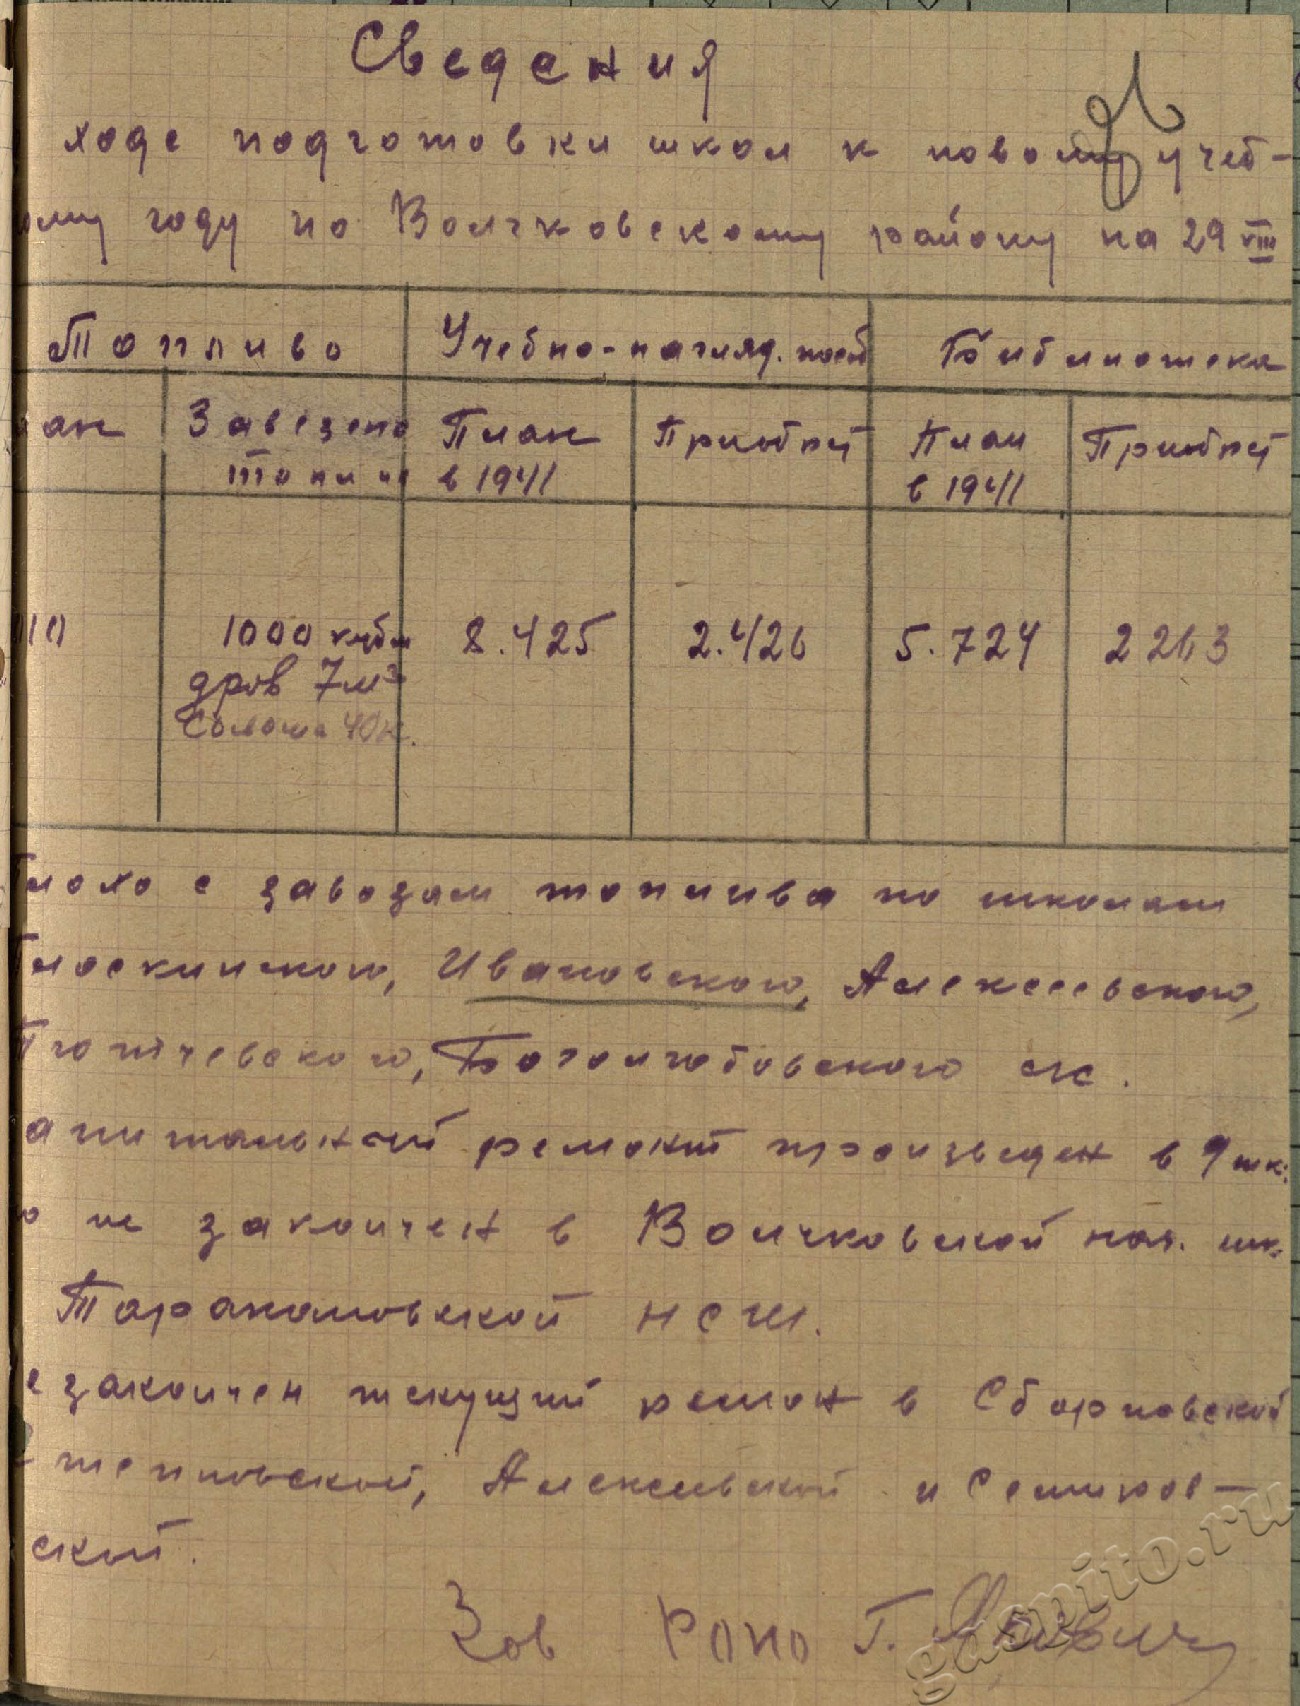 Сведения
ходе подготовки школ к новому учеб-
ому году по Волчковскому району на 29 VIII
Топливо Учебно-нагляд. пособ Библиотека
лан Завезено топлив План в 1941 Приобрет План в 1941 Приобрет
1000 кубм 8.425 2.426 5.724 2263
дров 7м³
Солома 40 к.
Плохо с завозам топлива по школам
Плоскинского, Ивановского, Алексеевского,
Боголюбовского с/с.
апитальный ремонт произведен в 9 шк.
о не закончен в Волчковской нач. шк.
Таракановской НСШ.
е закончен текущий ремон в Сборновской
Алексеевской и Семиков-
ской.
Зав Роно Г.
gasnito.ru